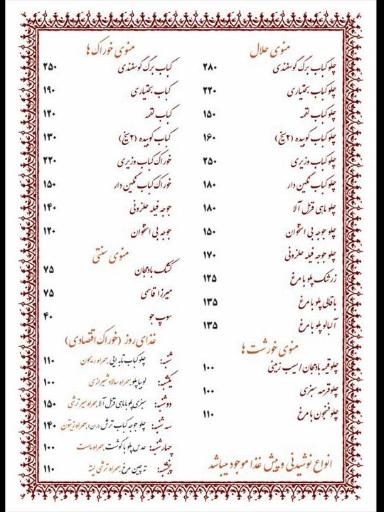 منوی حلال
چلو کباب برگ گوسفندی ۲۸۰
چلو کباب بختیاری ۲۲۰
چلو کباب لقمه ۱۵۰
چلو کباب کوبیده (۲ سیخ) ۱۶۰
چلو کباب وزیری ۲۵۰
چلو کباب نگین دار ۱۸۰
چلو ماهی قزل آلا ۱۸۰
چلو جوجه بی استخوان ۱۵۰
چلو جوجه فیله حلزونی ۱۷۰
زرشک پلو با مرغ ۱۲۵
باقالی پلو با مرغ ۱۳۵
آلبالو پلو با مرغ ۱۳۵
منوی خورشت ها
چلو قیمه بادمجان / سیب زمینی ۱۰۰
چلو قرمه سبزی ۱۰۰
چلو فسنجون با مرغ ۱۱۰
انواع نوشیدنی و پیش غذا موجود میباشد
منوی خوراک ها
کباب برگ گوسفندی ۲۵۰
کباب بختیاری ۱۹۰
کباب لقمه ۱۲۰
کباب کوبیده (۲ سیخ) ۱۳۰
خوراک کباب وزیری ۲۲۰
خوراک کباب نگین دار ۱۵۰
جوجه فیله حلزونی ۱۴۰
جوجه بی استخوان ۱۲۰
منوی سنتی
کشک بادمجان ۷۵
میرزا قاسمی ۷۵
سوپ جو ۴۰
غذای روز (خوراک اقتصادی)
شنبه: چلو کباب تابه ایی همراه ریحون ۱۱۰
یکشنبه: لوبیا پلو همراه سالاد شیرازی ۱۰۰
دوشنبه: سبزی پلو با ماهی قزل آلا همراه سیر ترشی ۱۵۰
سه شنبه: چلو جوجه کباب ترش (ران) همراه زیتون ۱۴۰
چهارشنبه: عدس پلو با گوشت همراه ماست ۱۰۰
پنجشنبه: ته چین مرغ همراه ترشی لیته ۱۱۰